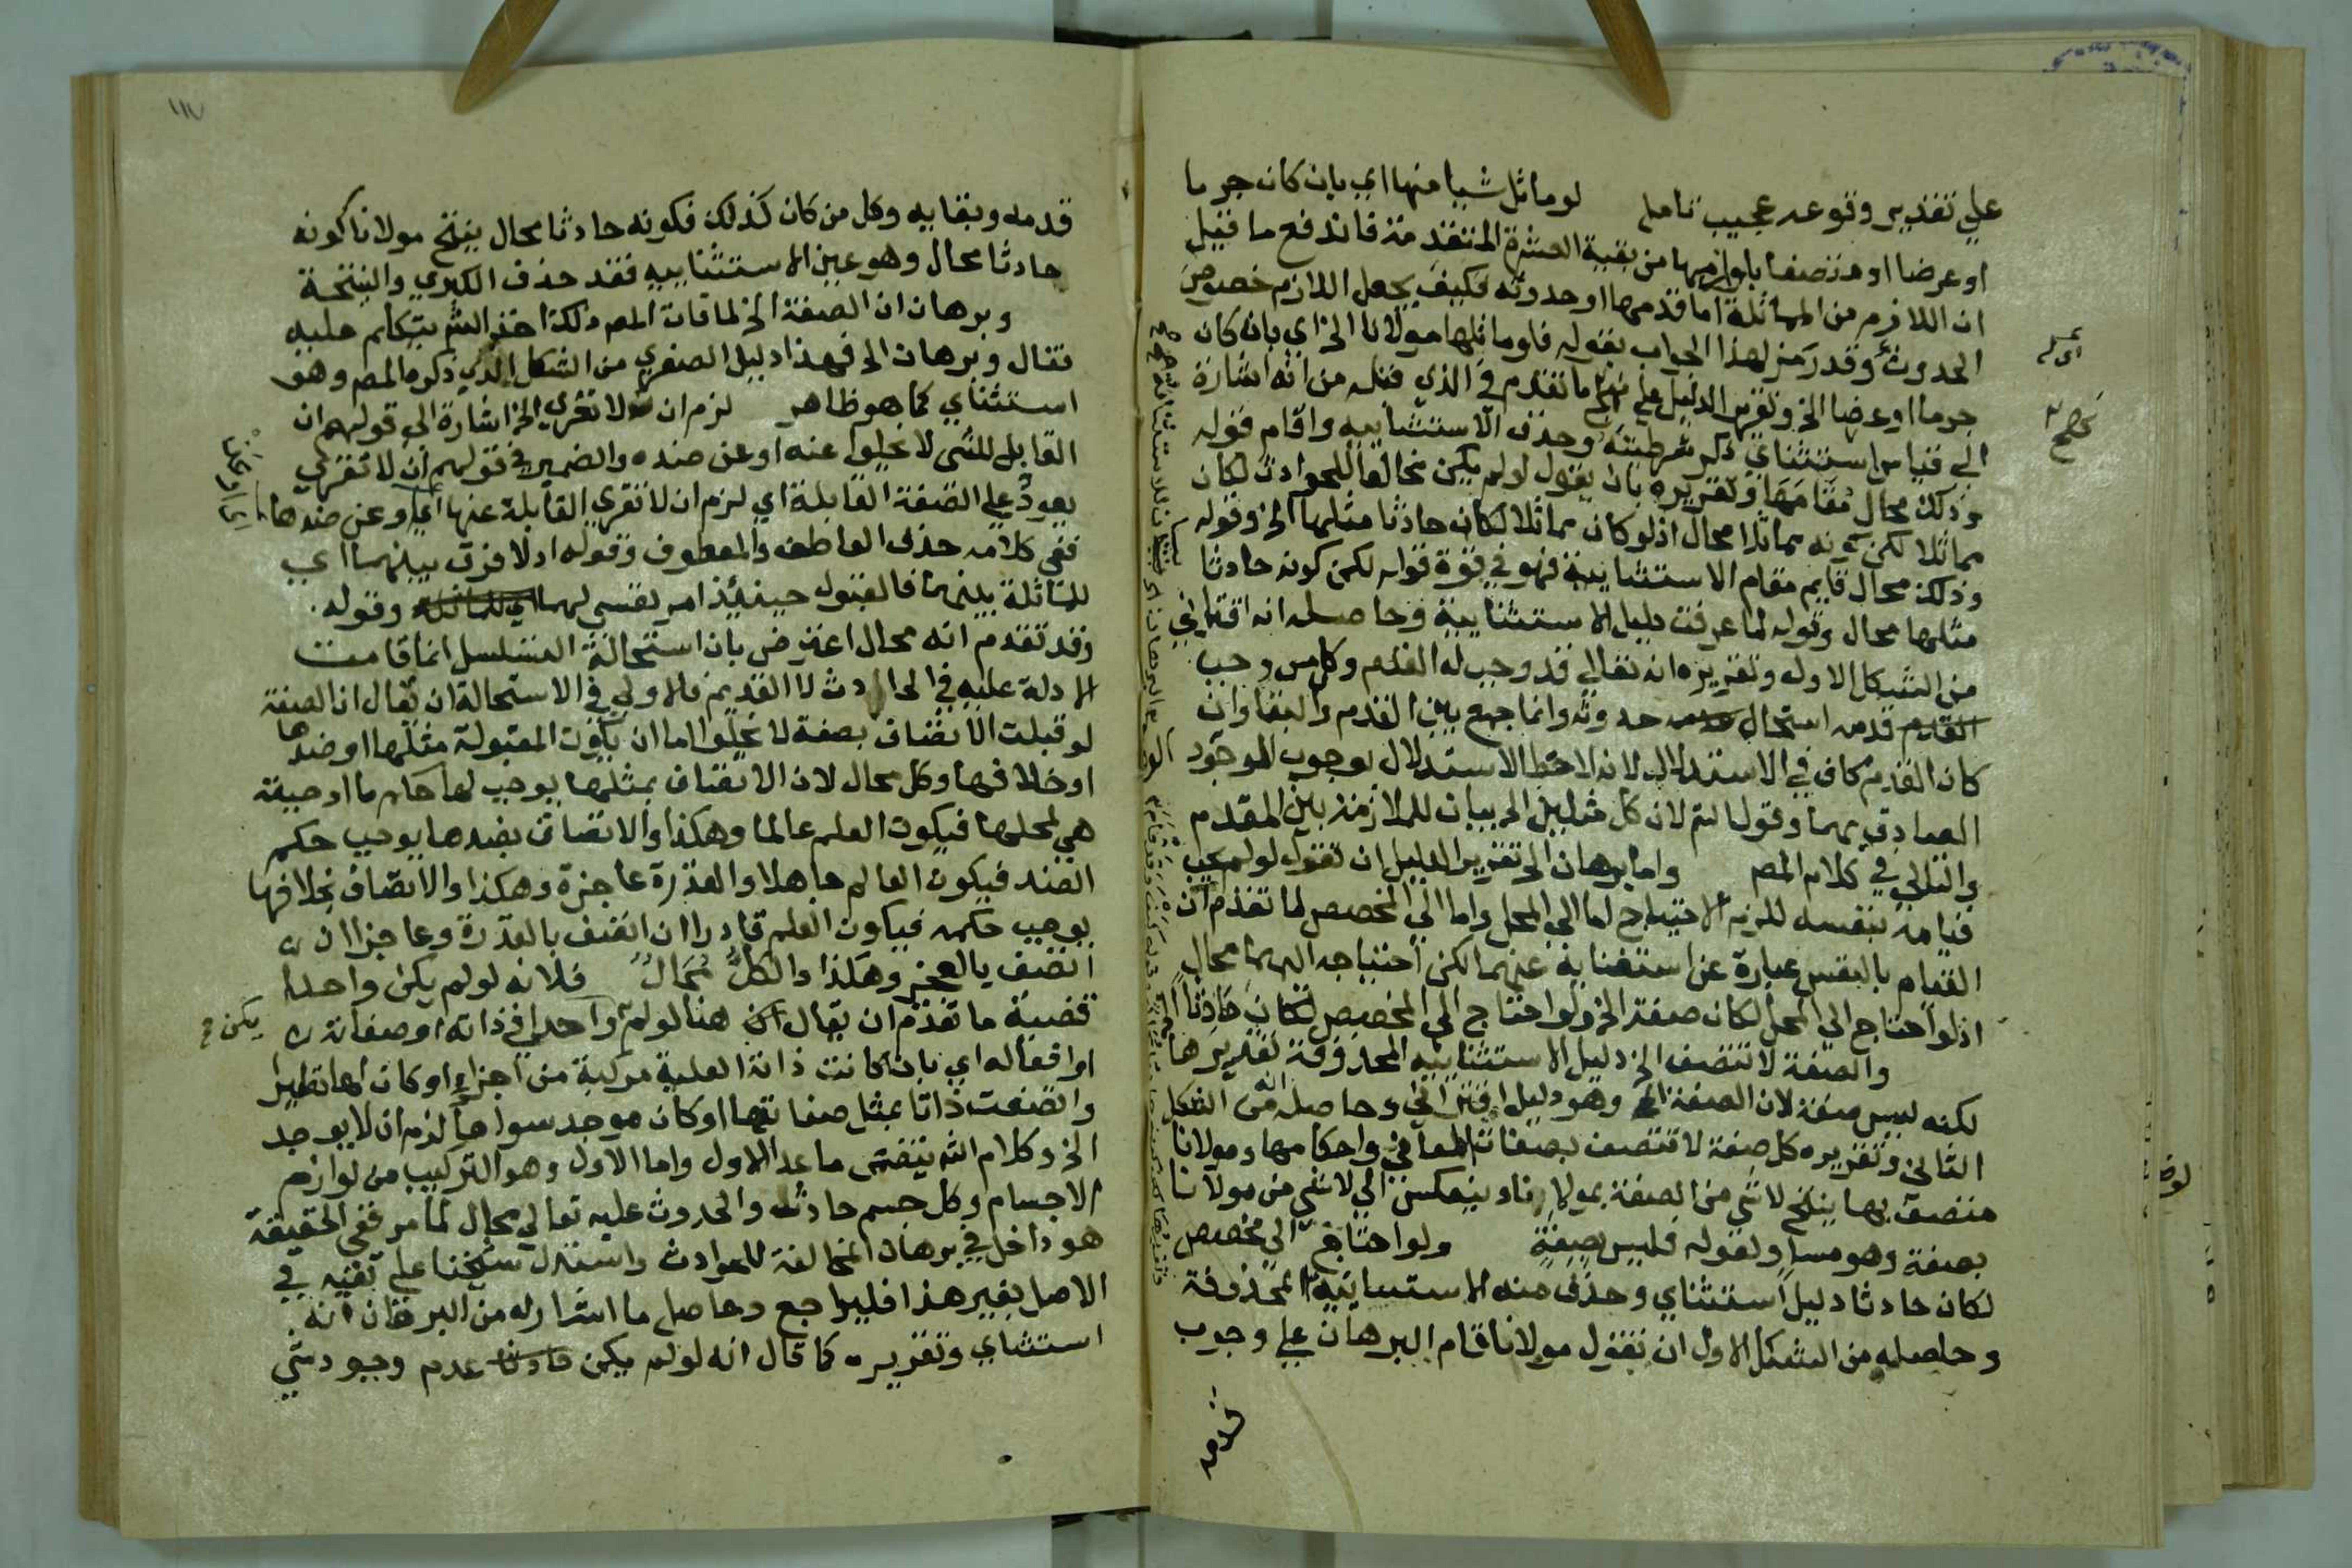 علي تقدير وقوعه عجيب تامل لو ماثل شيا منها اي بان كان جرما
او عرضا او متصفا بلوازمها من بقية العشرة المتقدمة فاندفع ما قيل
ان اللازم من المماثلة اما قدمها او حدوثه فكيف يجعل اللازم خصوص
الحدوث وقد رمز لهذا الجواب بقوله فلو ماثلها مولانا الخ اي بان كان
جرما او عرضا الخ وتقرير الدليل علي ما تقدم في الذي قبله من انه اشارة
الي قياس استثناي ذكر شرطيته وحذف الاستثنائيه واقام قوله
وذلك محال مقامها وتقريره بان يقول لو لم يكن مخالفا للحوادث لكان
مماثلا لكن كونه مماثلا محال اذ لو كان مماثلا لكان حادثا مثلها الخ وقوله
وذلك محال قايم مقام الاستثنايية فهو في قوة قوله لكن كونه حادثا
مثلها محال وقوله لما عرفت دليل الاستثنايية وحاصله انه اقتراني
من الشكل الاول وتقريره انه تعالي قد وجب له القدم وكل من وجب
قدمه استحال حدوثه وانما جمع بين القدم والبقا وان
كان القدم كاف في الاستدلال لانه لاحظ الاستدلال بوجوب الموجود
الصادق بهما وقولنا ثم لان كل مثليين الخ بيان للملازمة بين المقدم
والتالي في كلام المص واما برهان الخ تقرير الدليل ان تقول لو لم يجب
قيامه بنفسه للزم الاحتياج اما الي المحل واما الي المخصص لما تقدم ان
القيام بالنفس عبارة عن استغنايه عنهما لكن احتياجه اليهما محال
اذ لو احتاج الي المحل لكان صفة الخ ولو احتاج الي المخصص لكان حادثا
والصفة لا تتصف الخ دليل الاستثناييه المحذوفة تقديرها
لكنه ليس صفة لان الصفة الخ وهو دليل اقتراني وحاصله انه من الشكل
الثاني وتقريره كل صفة لا تتصف بصفات المعاني واحكامها ومولانا
متصف بها ينتج لا شي من الصفة بمولانا وينعكس الي لا شي من مولانا
بصفة وهو مساو لقوله فليس بصفة ولو احتاج الي مخصص
لكان حادثا دليل استثناي وحذف منه الاستثناييه المحذوفة
وحاصله من الشكل الاول ان تقول مولانا قام البرهان علي وجوب
قدمه
قدمه وبقايه وكل من كان كذلك فكونه حادثا محال ينتج مولانا كونه
حادثا محال وهو عين الاستثناييه فقد حذف الكبري والنتيجة
وبرهان ان الصفة الخ لما فات المص ذلك اخذ الشم يتكلم عليه
فقال وبرهان الخ فهذا دليل الصغري من الشكل الذي ذكره المص وهو
استثناي كما هو ظاهر لزم ان لا تعري الخ اشارة الي قولهم ان
القابل للشي لا يخلوا عنه او عن ضده والضمير في قولهم ان لا تعري
يعود علي الصفة القابلة اي لزم ان لا تعري القابلة عنها اي وعن ضدها
ففي كلامه حذف العاطف والمعطوف وقوله اذ لا فرق بينهما اي
للمماثلة بينهما فالقبول حينئذ امر نفسي لهما وقوله
وقد تقدم انه محال اعترض بان استحالة التسلسل انما قامت
الادلة عليه في الحوادث لا القديم فالاولي في الاستحالة ان يقال ان الصفة
لو قبلت الاتصاف بصفة لا يخلوا اما ان يكون المقبولة مثلها او ضدها
او خلافها وكل محال لان الاتصاف بمثلها يوجب لها حكم ما اوجبته
هي لمحلها فيكون العلم عالما وهكذا والاتصاف بضدها يوجب حكم
الضد فيكون العالم جاهلا والقدرة عاجزة وهكذا والاتصاف بخلافها
يوجب حكمه فيكون العلم قادرا ان اتصف بالقدرة وعاجزا ان
اتصف بالعجز وهكذا والكل محال فلانه لو لم يكن واحدا
قضية ما تقدم ان يقال هنا لو لم يكن واحدا في ذاته او صفاته
او افعاله اي بان كانت ذاته العلية مركبة من اجزاء او كان لها نظير
واتصفت ذات بمثل صفاتها او كان موجد سواها لزم ان لا يوجد
الخ وكلام الشم ينفي ما عدا الاول واما الاول وهو التركيب من لوازم
الاجسام وكل جسم حادث والحدوث عليه تعالي محال لما مر ففي الحقيقة
هو داخل في برهان المخالفة للحوادث واستدل شيخنا علي نفيه في
الاصل بغير هذا فليراجع وحاصل ما اشار له من البرهان انه
استثناي وتقريره كما قال انه لو لم يكن عدم وجود شي